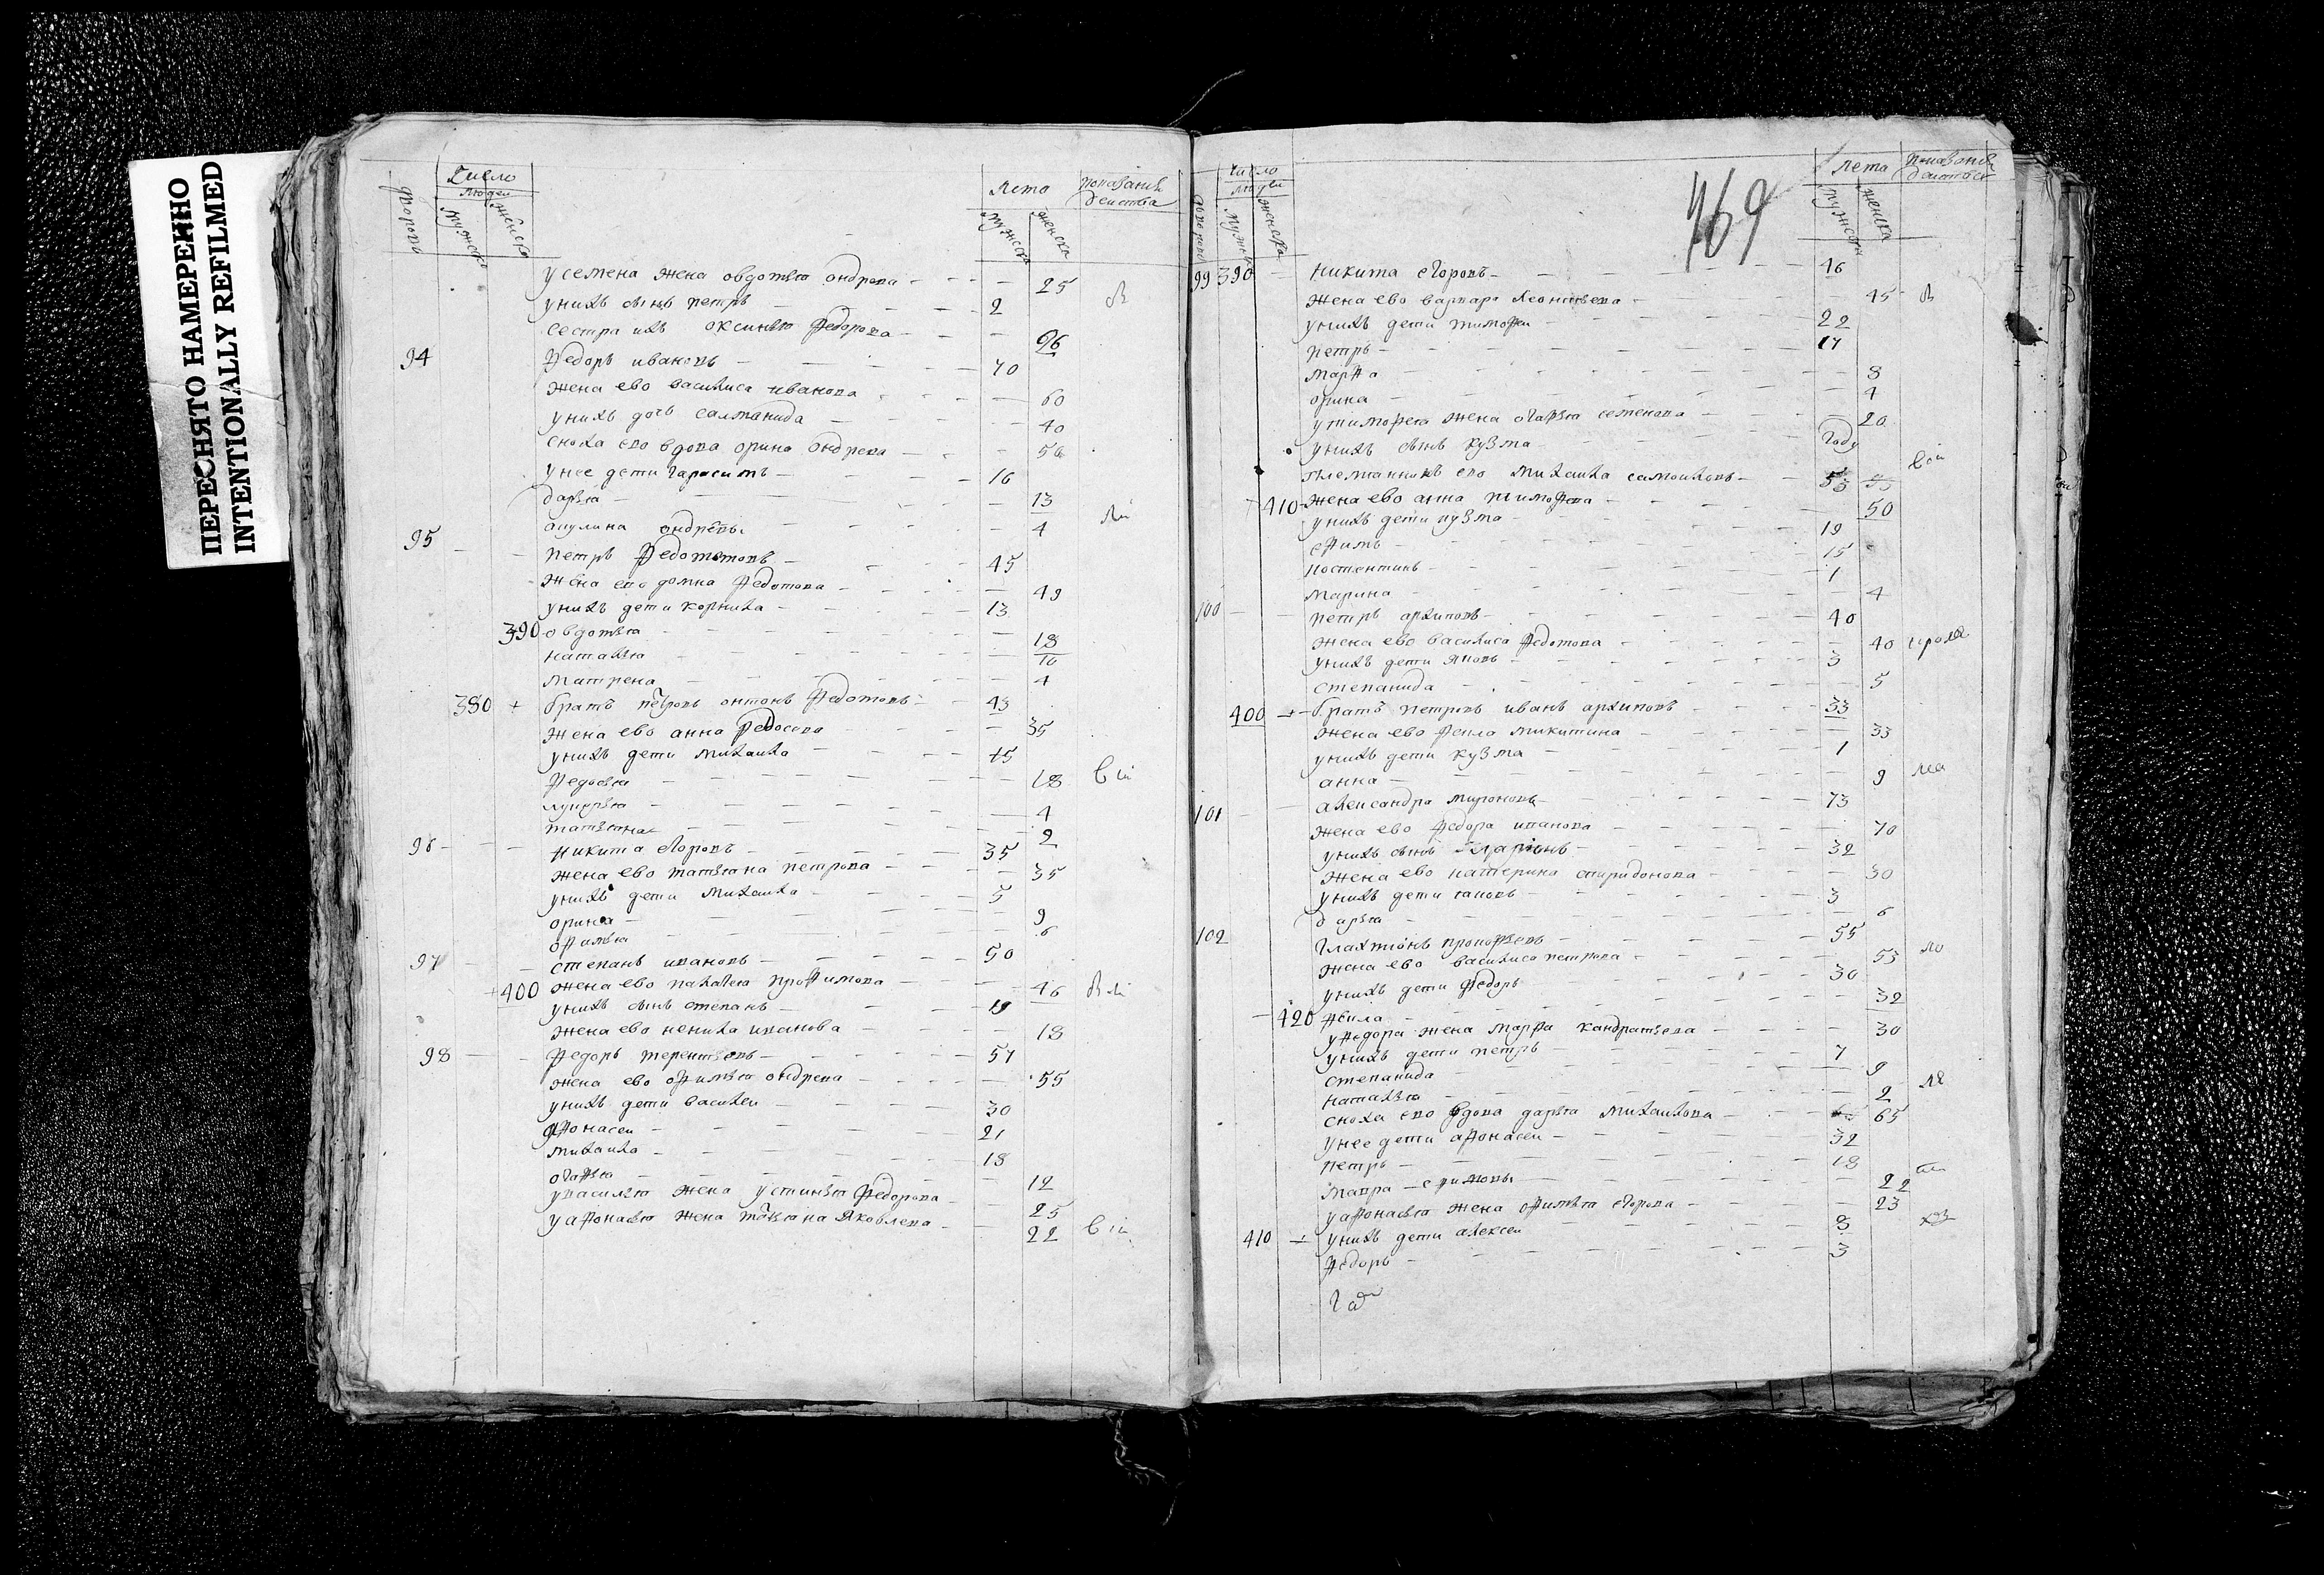 ПЕРЕСНЯТО НАМЕРЕННО
INTENTIONALLY REFILMED
Число
людей
дворовъ
мужска
женска
лета
мужска
женска
показание
действа
у семена жена овдотья ондреева 25
у нихъ сынъ петръ 2
сестра ихъ оксинья федорова 26
94 федоръ ивановъ 70
жена ево василиса иванова 60
у нихъ дочь саламанида 40
сноха ево вдова орина ондреева 56
у нее дети гарасимъ 16
дарья 13
акулина ондреевы 4
95 петръ федотовъ 45
жена ево домна федотова 49
у нихъ дети корнила 13
390 овдотья 18
наталья 10
матрена 4
380 + братъ петровъ онтонъ федотовъ 43
жена ево анна федосеева 35
у нихъ дети михаила 15
федосья 18
лукерья 4
татьяна 2
96 никита егоровъ 35
жена ево татьяна петрова 35
у нихъ дети михаила 5
орина 9
офимья 6
97 степанъ ивановъ 50
+ 400 жена ево палагея трофимова 46
у нихъ сынъ степанъ 19
жена ево ненила иванова 18
98 федоръ терентьевъ 57
жена ево офимья ондреева 55
у нихъ дети василеи 30
афонасеи 21
михаила 18
огафья 12
у василья жена устинья федорова 25
у афонасья жена татьяна яковлева 22
469
число
людеи
мужска
женска
лета
мужска
женска
показание
действа
99 390 никита егоровъ 46
жена ево варвара леонтьева 45
у нихъ дети тимофеи 22
петръ 17
марфа 8
орина 4
у тимофея жена огафья семенова 20
у нихъ сынъ кузма году
племянникъ ево михаила самоиловъ 53
410 жена ево анна тимофеева 50
у нихъ дети кузма 19
ефимъ 15
костентинъ 1
марина 4
100 петръ архиповъ 40
жена ево василиса федотова 40
у нихъ дети яковъ 3
степанида 5
400 + братъ петровъ иванъ архиповъ 33
жена ево фекла микитина 33
у нихъ дети кузма 1
анна 9
101 александра мироновъ 73
жена ево федора иванова 70
у нихъ сынъ ларионъ 32
жена ево катерина спиридонова 30
у нихъ дети яковъ 3
дарья 6
102 галахтионъ прокофьевъ 55
жена ево василиса петрова 53
у нихъ дети федоръ 30
420 фекла 32
у федора жена марфа кандратьева 30
у нихъ дети петръ 7
степанида 9
наталья 2
сноха ево вдова дарья михаилова 65
у нее дети афонасеи 32
петръ 18
мавра ефимовы 22
у афонасья жена офимья егорова 23
410 + у нихъ дети алексеи 8
федоръ 3